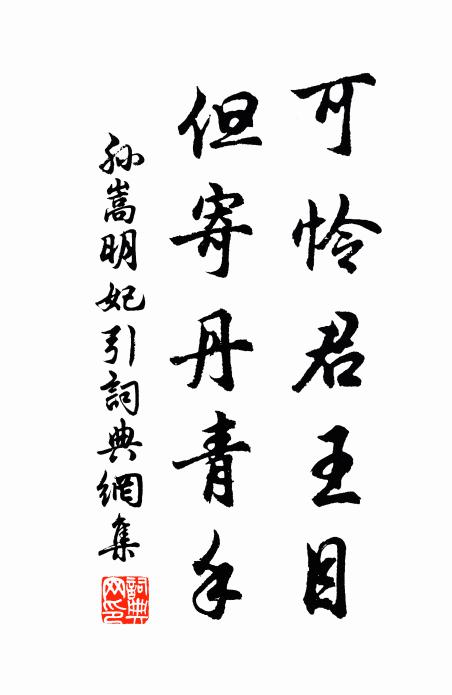 可怜君王目
但寄丹青手
孙嵩明妃引詞典網集
詞典网印